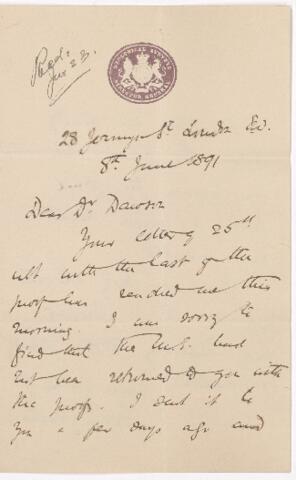 Recd.
June 23.
GEOLOGICAL SURVEY
DIRECTOR GENERAL
28 Jermyn St. London S.W.
8th. June 1891
Dear Dr Dawson
Your letter of 25th
ult with the last of the
proof has reached me this
morning. I was sorry to
find that the M.S. had
not been returned to you with
the proofs. I sent it to
you a few days ago and